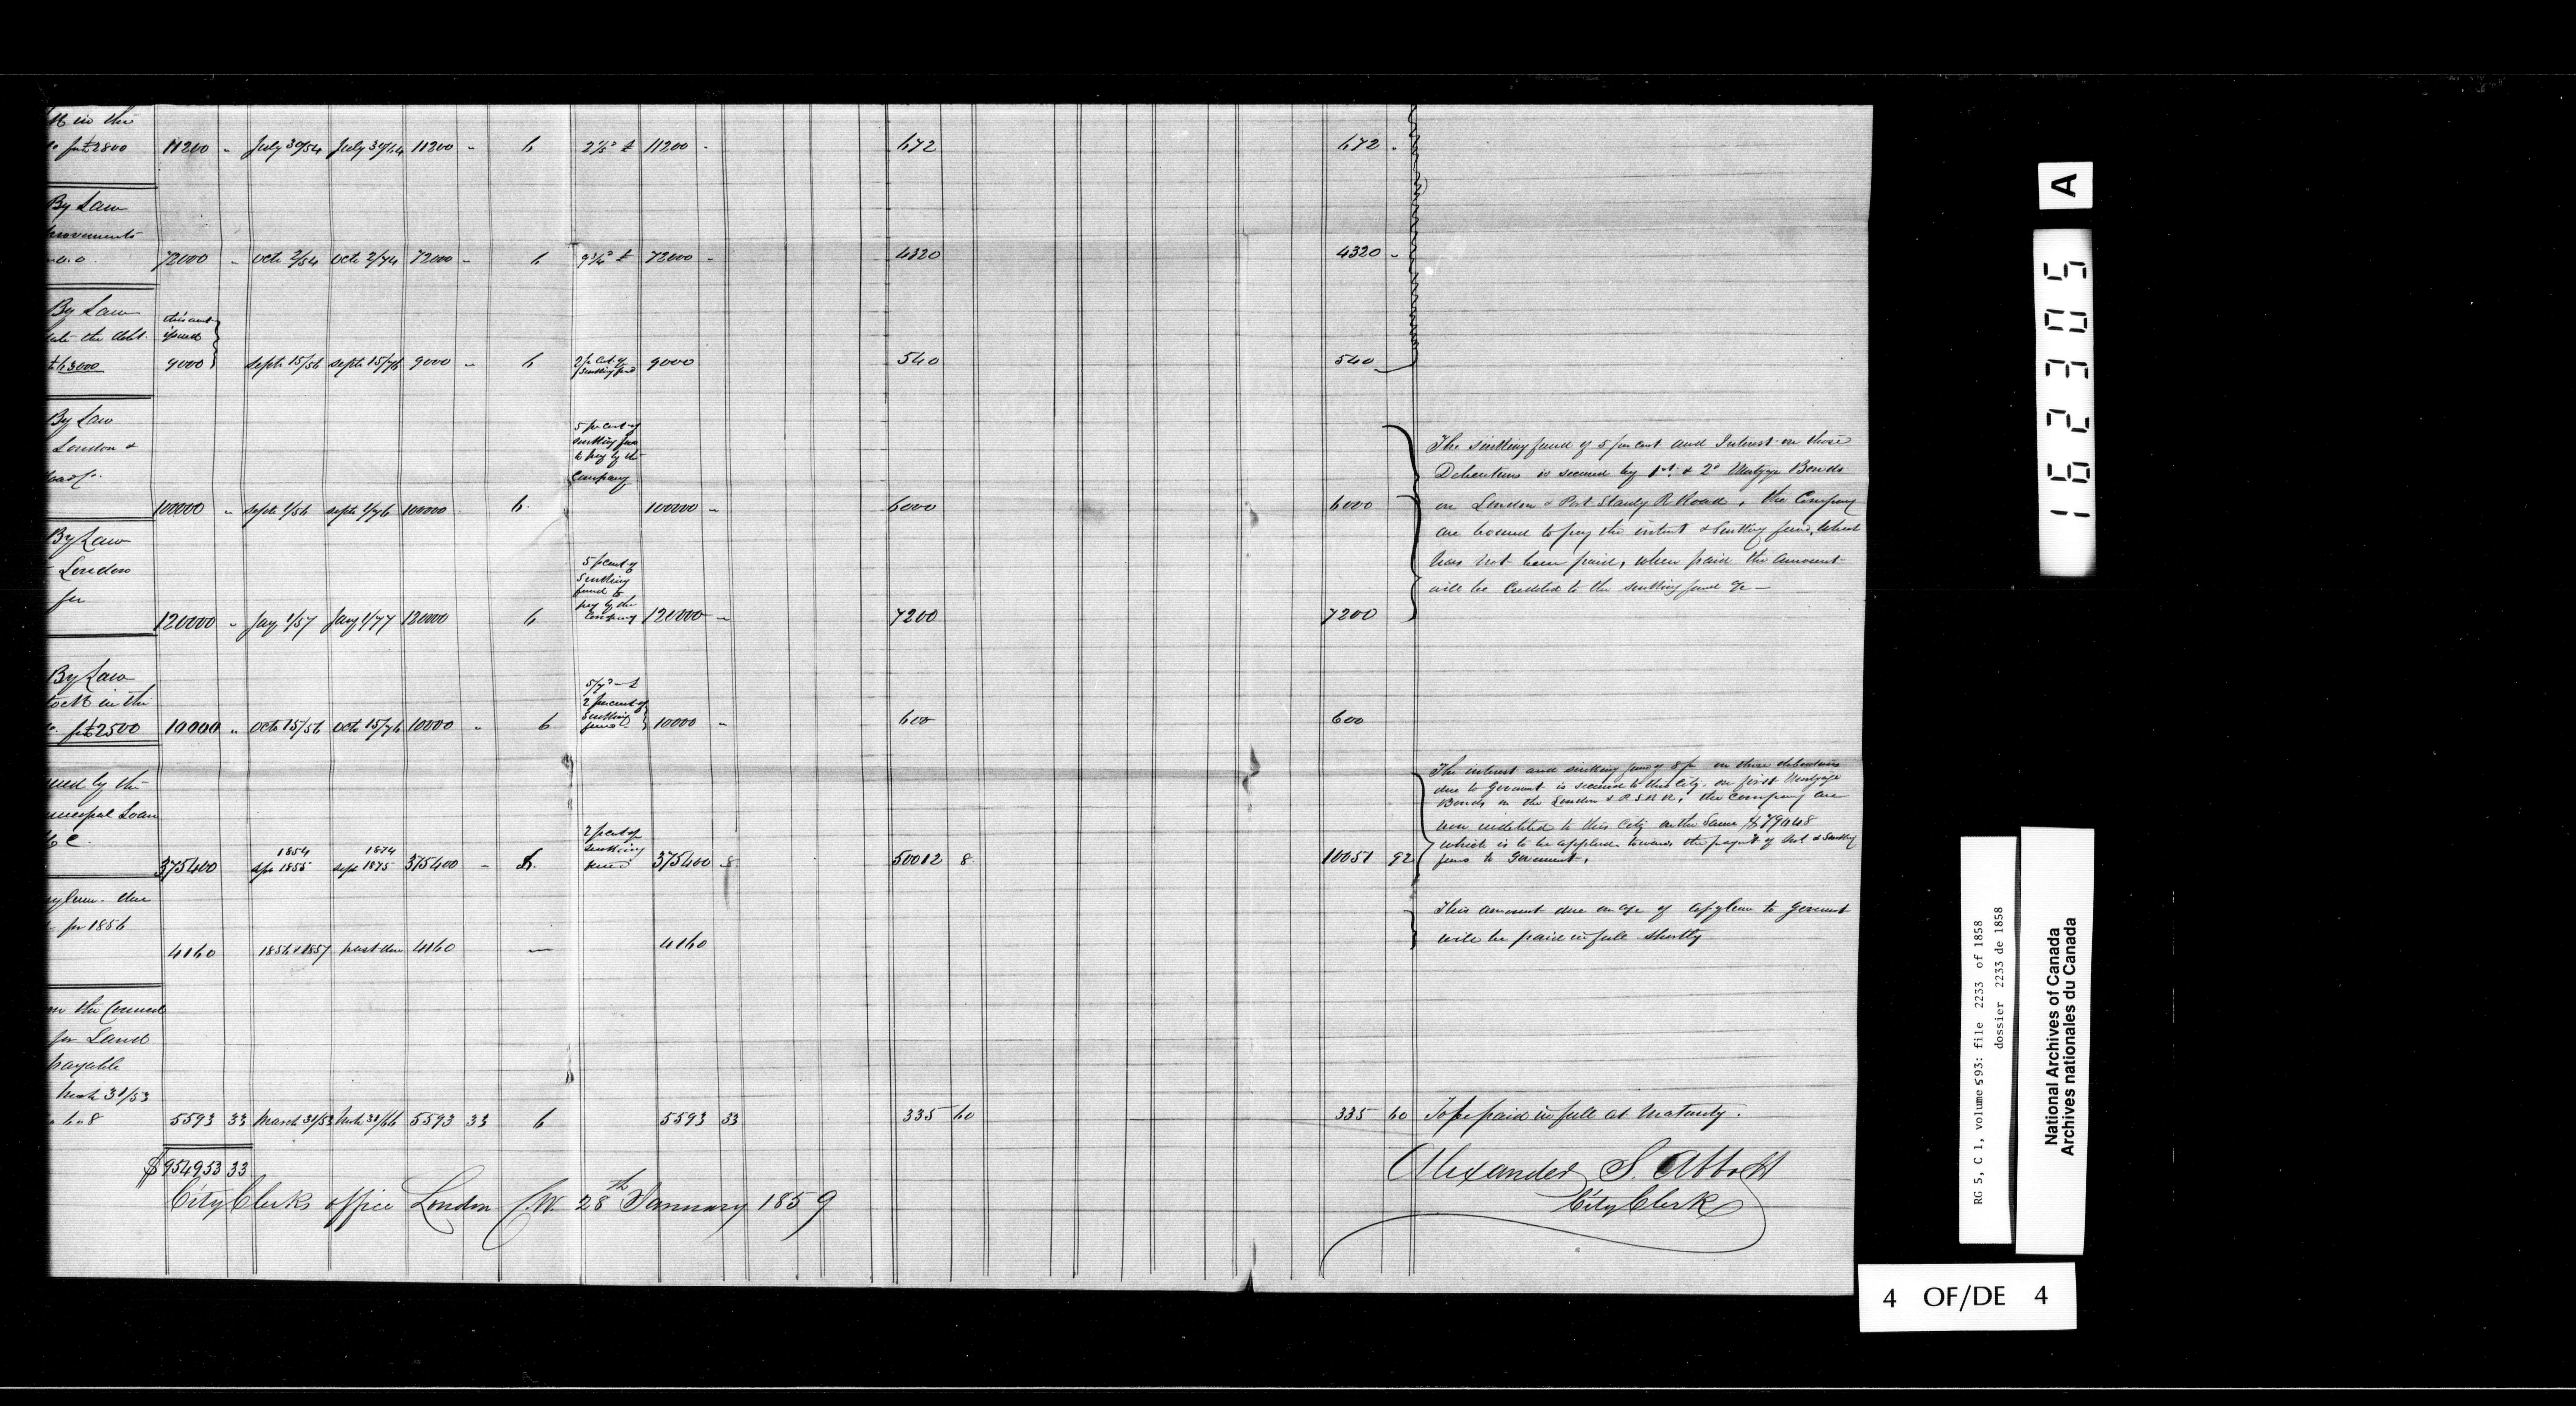 in the
for £2800 11200 " July 30/54 July 30/64 11200 " 6 11200 " 672 672 "
By Law
provements
72000 " Octr 2/54 Octr 2/74 72000 " 6 72000 " 4320 4320 "
By Law
the debt
£63000
this amt
issued
9000 Septr 15/56 Septr 15/76 9000 " 6 2 pr Ct. of Sinking fund 9000 540 540
By Law
London &
Road Co.
5 pr Cent of
sinking fund
to pay by the
Company
100000 " Septr 1/56 Septr 1/76 100000 6. 100000 " 6000 6000
The sinking fund of 5 per cent and Interest on those
Debentures is secured by 1st. & 2d Mortgage Bonds
on London & Port Stanly R Road, the Company
are bound to pay the intrest & Sinking fund, which
has not been paid, when paid the amount
will be Credited to the sinking fund &c —
By Law
London
for
5 pr cent of
Sinking
fund to
pay by the
Company
120000 " Jany 1/57 Jany 1/77 120000 6 120000 " 7200 7200
By Law
Stock in the
for £2500
2 per cent of
Sinking
fund
10000 " Octr 15/56 Octr 15/76 10000 " 6 10000 " 600 600
by the
Municipal Loan
C.
2 pr cent of
sinking
fund
1854 1874
375400 Sepr 1855 Sepr 1875 375400 " 375400 8 50012 8. 10051 92
The interest and sinking fund of 8 pr on these debentures
due to Goverment is secured to this City. on first Mortgage
Bonds on the London & P. S. R R, the Company are
now indebted to this City on the Same
which is to be applied towards the paymt of Int & Sinking
fund to Goverment.
Asylum due
for 1856
4160 1856 & 1857 past due 4160 — 4160
This amount due on a/c of Asylum to Goverment
will be paid in full shortly
the Council
for Land
payable
March 31/53
5593 33 March 31/53 Mch 31/66 5593 33 6 5593 33 335 60 335 60 To be paid in full at Maturity.
$954953 33
City Clerks office London C.W. 28th January 1859
Alexander S. Abbott
City Clerk
A
162305
RG 5, C 1, volume 593: file 2233 of 1858
dossier 2233 de 1858
National Archives of Canada
Archives nationales du Canada
4 OF/DE 4